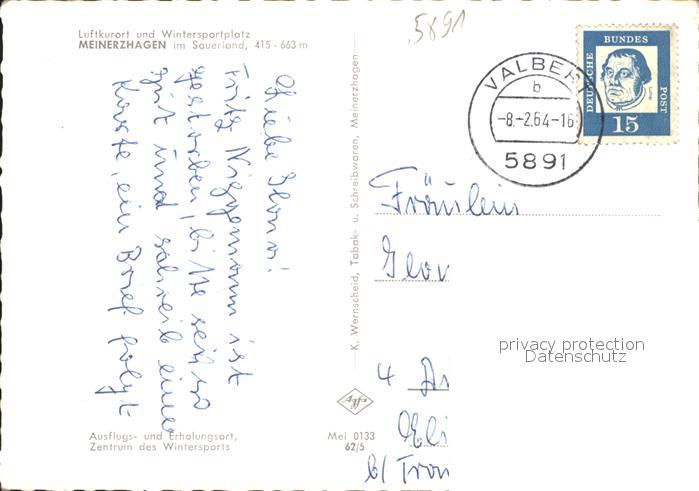 Luftkurort und Wintersportplatz
MEINERZHAGEN im Sauerland, 415 - 663 m
5891
VALBERT
b
-8.-2.64-16
5891
DEUTSCHE
BUNDES
POST
15
Liebe Ilona!
Fritz Niggemann ist
gestorben, bitte sei so
gut und schreib eine
Karte, ein Brief folgt.
K. Wernscheid, Tabak- u. Schreibwaren, Meinerzhagen
Fräulein
privacy protection
Datenschutz
4
Eli
b/Tron
Ausflugs- und Erholungsort,
Zentrum des Wintersports
Mei 0133
62/5